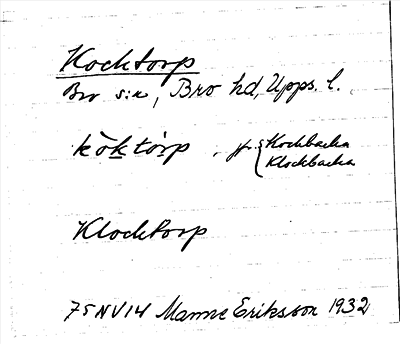 Kocktorp
Bro s:n, Bro hd, Upps. l.
kòktórp . jfr { Kockbacka
Klockbacka
Klocktorp
75NV14 Manne Eriksson 1932